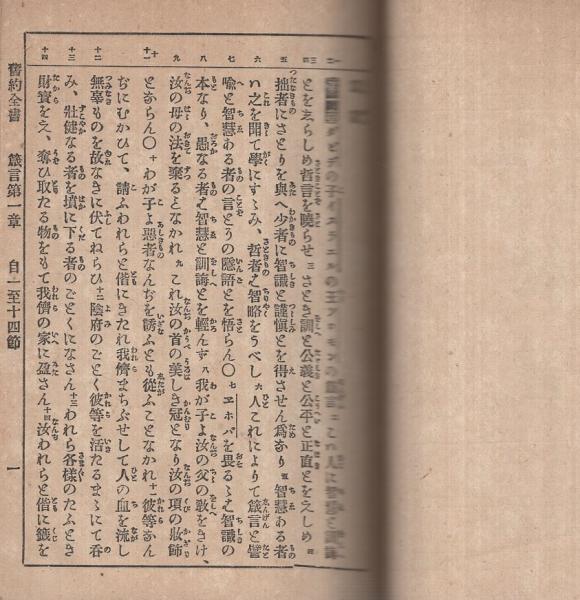 ダビデの子イスラエルの王ソロモンの箴言 二 こハ人に智慧と訓誨
とをしらしめ哲言を曉らせ 三 さとき訓と公義と公平と正直とをえしめ 四
拙者にさとりを與へ少者に智識と謹愼とを得させん爲なり 五 智慧ある者
ハ之を聞て學にすゝみ、哲者ハ智略をうべし 六 人これによりて箴言と譬
喩と智慧ある者の言とその隱語とを悟らん〇 七 ヱホバを畏るゝハ智識の
本なり、愚なる者ハ智慧と訓誨とを輕んず 八 我が子よ汝の父の敎をきけ、
汝の母の法を棄ることなかれ 九 これ汝の首の美しき冠となり汝の項の妝飾
とならん〇 十 わが子よ惡者なんぢを誘ふとも從ふことなかれ 十一 彼等なん
ぢにむかひて、請ふわれらと偕にきたれ我儕まちぶせして人の血を流し
無辜ものを故なきに伏てねらひ 十二 陰府のごとく彼等を活たるまゝにて呑
み、壯健なる者を墳に下る者のごとくになさん 十三 われら各樣のたふとき
財寳をえ、奪ひ取たる物をもて我儕の家に盈さん 十四 汝われらと偕に籤を
舊約全書 箴言第一章 自一至十四節 一